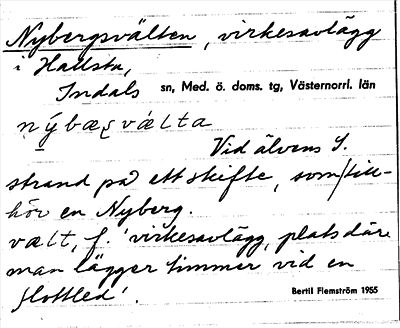 Nybergsvälten, virkesavlägg
i Hallsta,
Indals sn, Med. ö. doms. tg, Västernorrl. län
nýbæʂvælta
Vid älvens S.
strand på ett skifte, som till-
hör en Nyberg.
vælt, f. 'virkesavlägg, plats där
man lägger timmer vid en
flottled'.
Bertil Flemström 1955